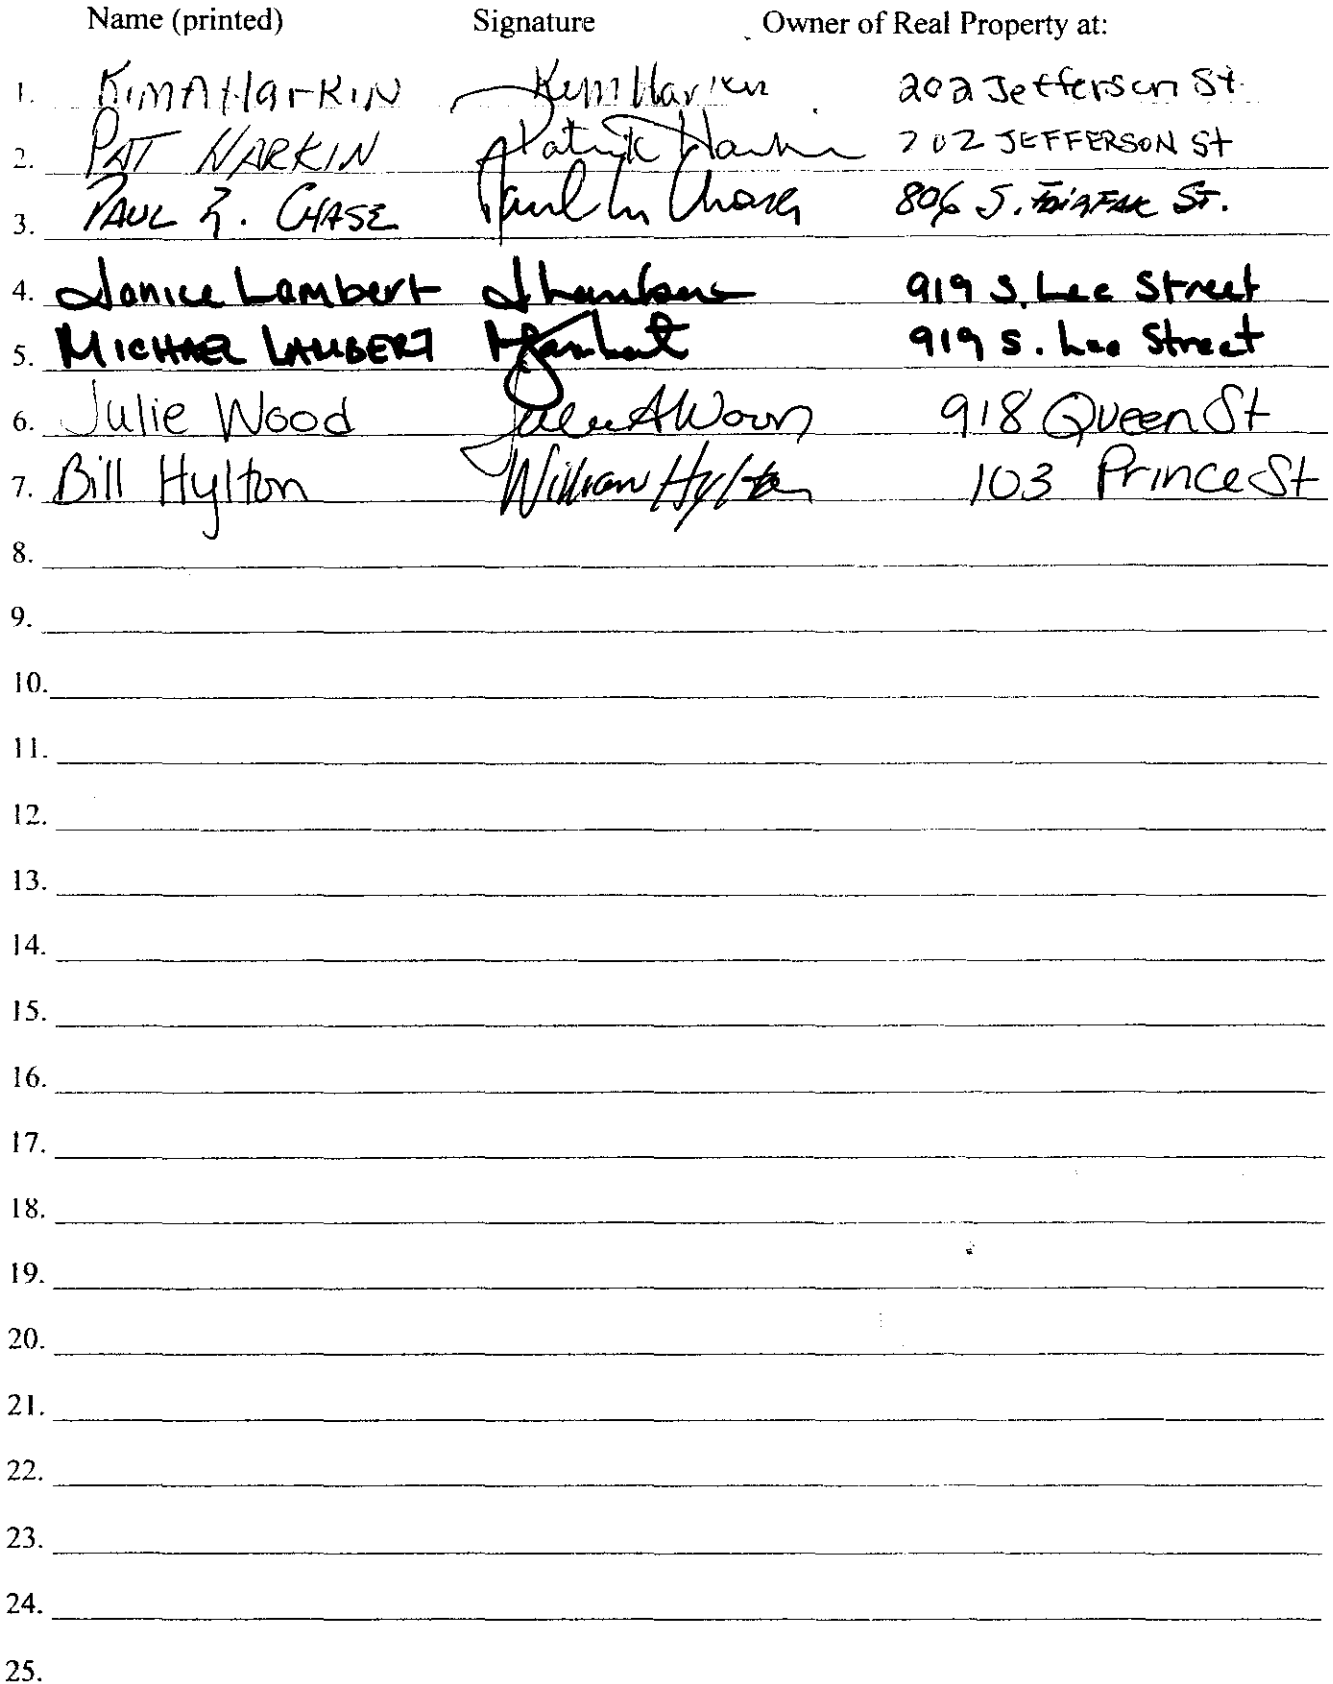 Name (printed) Signature Owner of Real Property at:
1. Kim A Harkin Kim Harkin 202 Jefferson St.
2. PAT HARKIN Patrick Harkin 202 JEFFERSON St
3. PAUL R. CHASE Paul Chase 806 S. FAIRFAX ST.
4. Janice Lambert JLambert 919 S. Lee Street
5. MICHAEL LAMBERT MLambert 919 S. Lee Street
6. Julie Wood Julie A Wood 918 Queen St
7. Bill Hylton William Hylton 103 Prince St
8.
9.
10.
11.
12.
13.
14.
15.
16.
17.
18.
19.
20.
21.
22.
23.
24.
25.